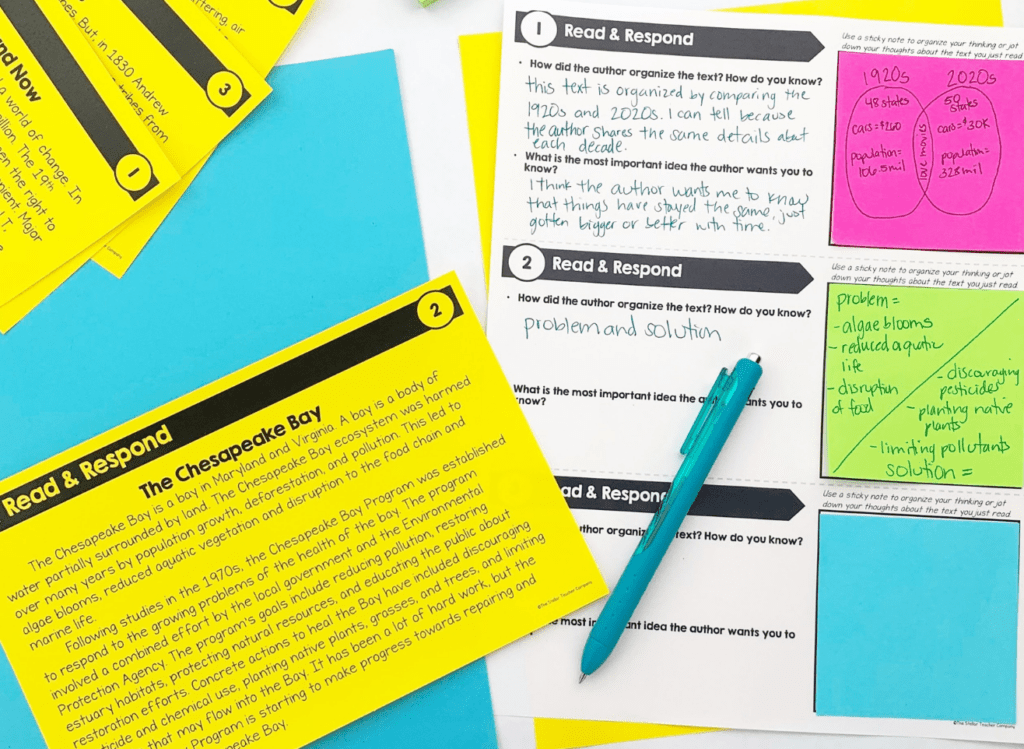 ffering, air
nes. But, in 1830 Andrew
tribes from
3
and Now
a world of change. In
illion. The 19th
en the right to
nient Major
1
Read & Respond
2
The Chesapeake Bay
The Chesapeake Bay is a bay in Maryland and Virginia. A bay is a body of
water partially surrounded by land. The Chesapeake Bay ecosystem was harmed
over many years by population growth, deforestation, and pollution. This led to
algae blooms, reduced aquatic vegetation and disruption to the food chain and
marine life.
Following studies in the 1970s, the Chesapeake Bay Program was established
to respond to the growing problems of the health of the bay. The program
involved a combined effort by the local government and the Environmental
Protection Agency. The program's goals include reducing pollution, restoring
estuary habitats, protecting natural resources, and educating the public about
restoration efforts. Concrete actions to heal the Bay have included discouraging
icide and chemical use, planting native plants, grasses, and trees, and limiting
that may flow into the Bay. It has been a lot of hard work, but the
Program is starting to make progress towards repairing and
peake Bay.
©The Stellar Teacher Company
1 Read & Respond
Use a sticky note to organize your thinking or jot
down your thoughts about the text you just read
• How did the author organize the text? How do you know?
this text is organized by comparing the
1920s and 2020s. I can tell because
the author shares the same details about
each decade.
• What is the most important idea the author wants you to
know?
I think the author wants me to know
that things have stayed the same, just
gotten bigger or better with time.
1920s 2020s
48 states
50 states
cars=$260
cars=$30K
population=
106.5mil
population=
328mil
love movies
2 Read & Respond
Use a sticky note to organize your thinking or jot
down your thoughts about the text you just read
• How did the author organize the text? How do you know?
problem and solution
What is the most important idea the au ants you to
know?
problem=
- algae blooms
- reduced aquatic
life
- disruption
of food
- discouraging
pesticides
- planting native
plants
- limiting pollutants
solution =
ad & Respon
Use a sticky note to organize your thinking or jot
down your thoughts about the text you just read
uthor organiz text? How do you know?
most im ant idea the author wants you to
©The Stellar Teacher Company